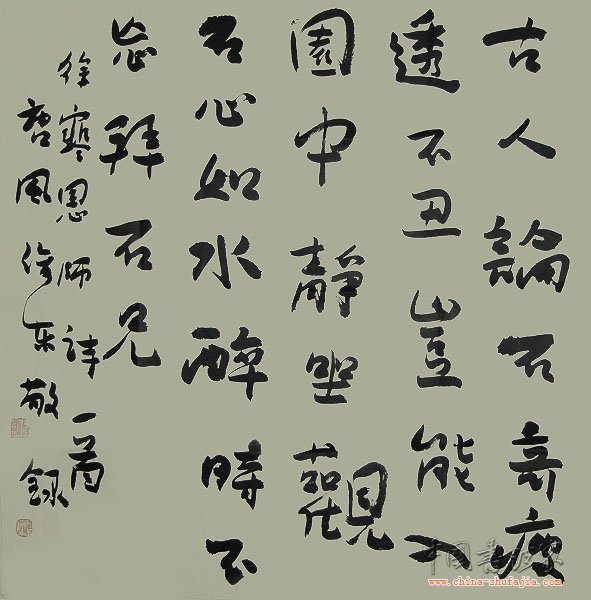 古人論石奇瘦
透不丑豈能入
園中靜坐觀
石心如水醉時不
忘拜石兄
徐寒恩師詩一首
唐風 東敬錄
中国书法家
www.china-shufajia.com